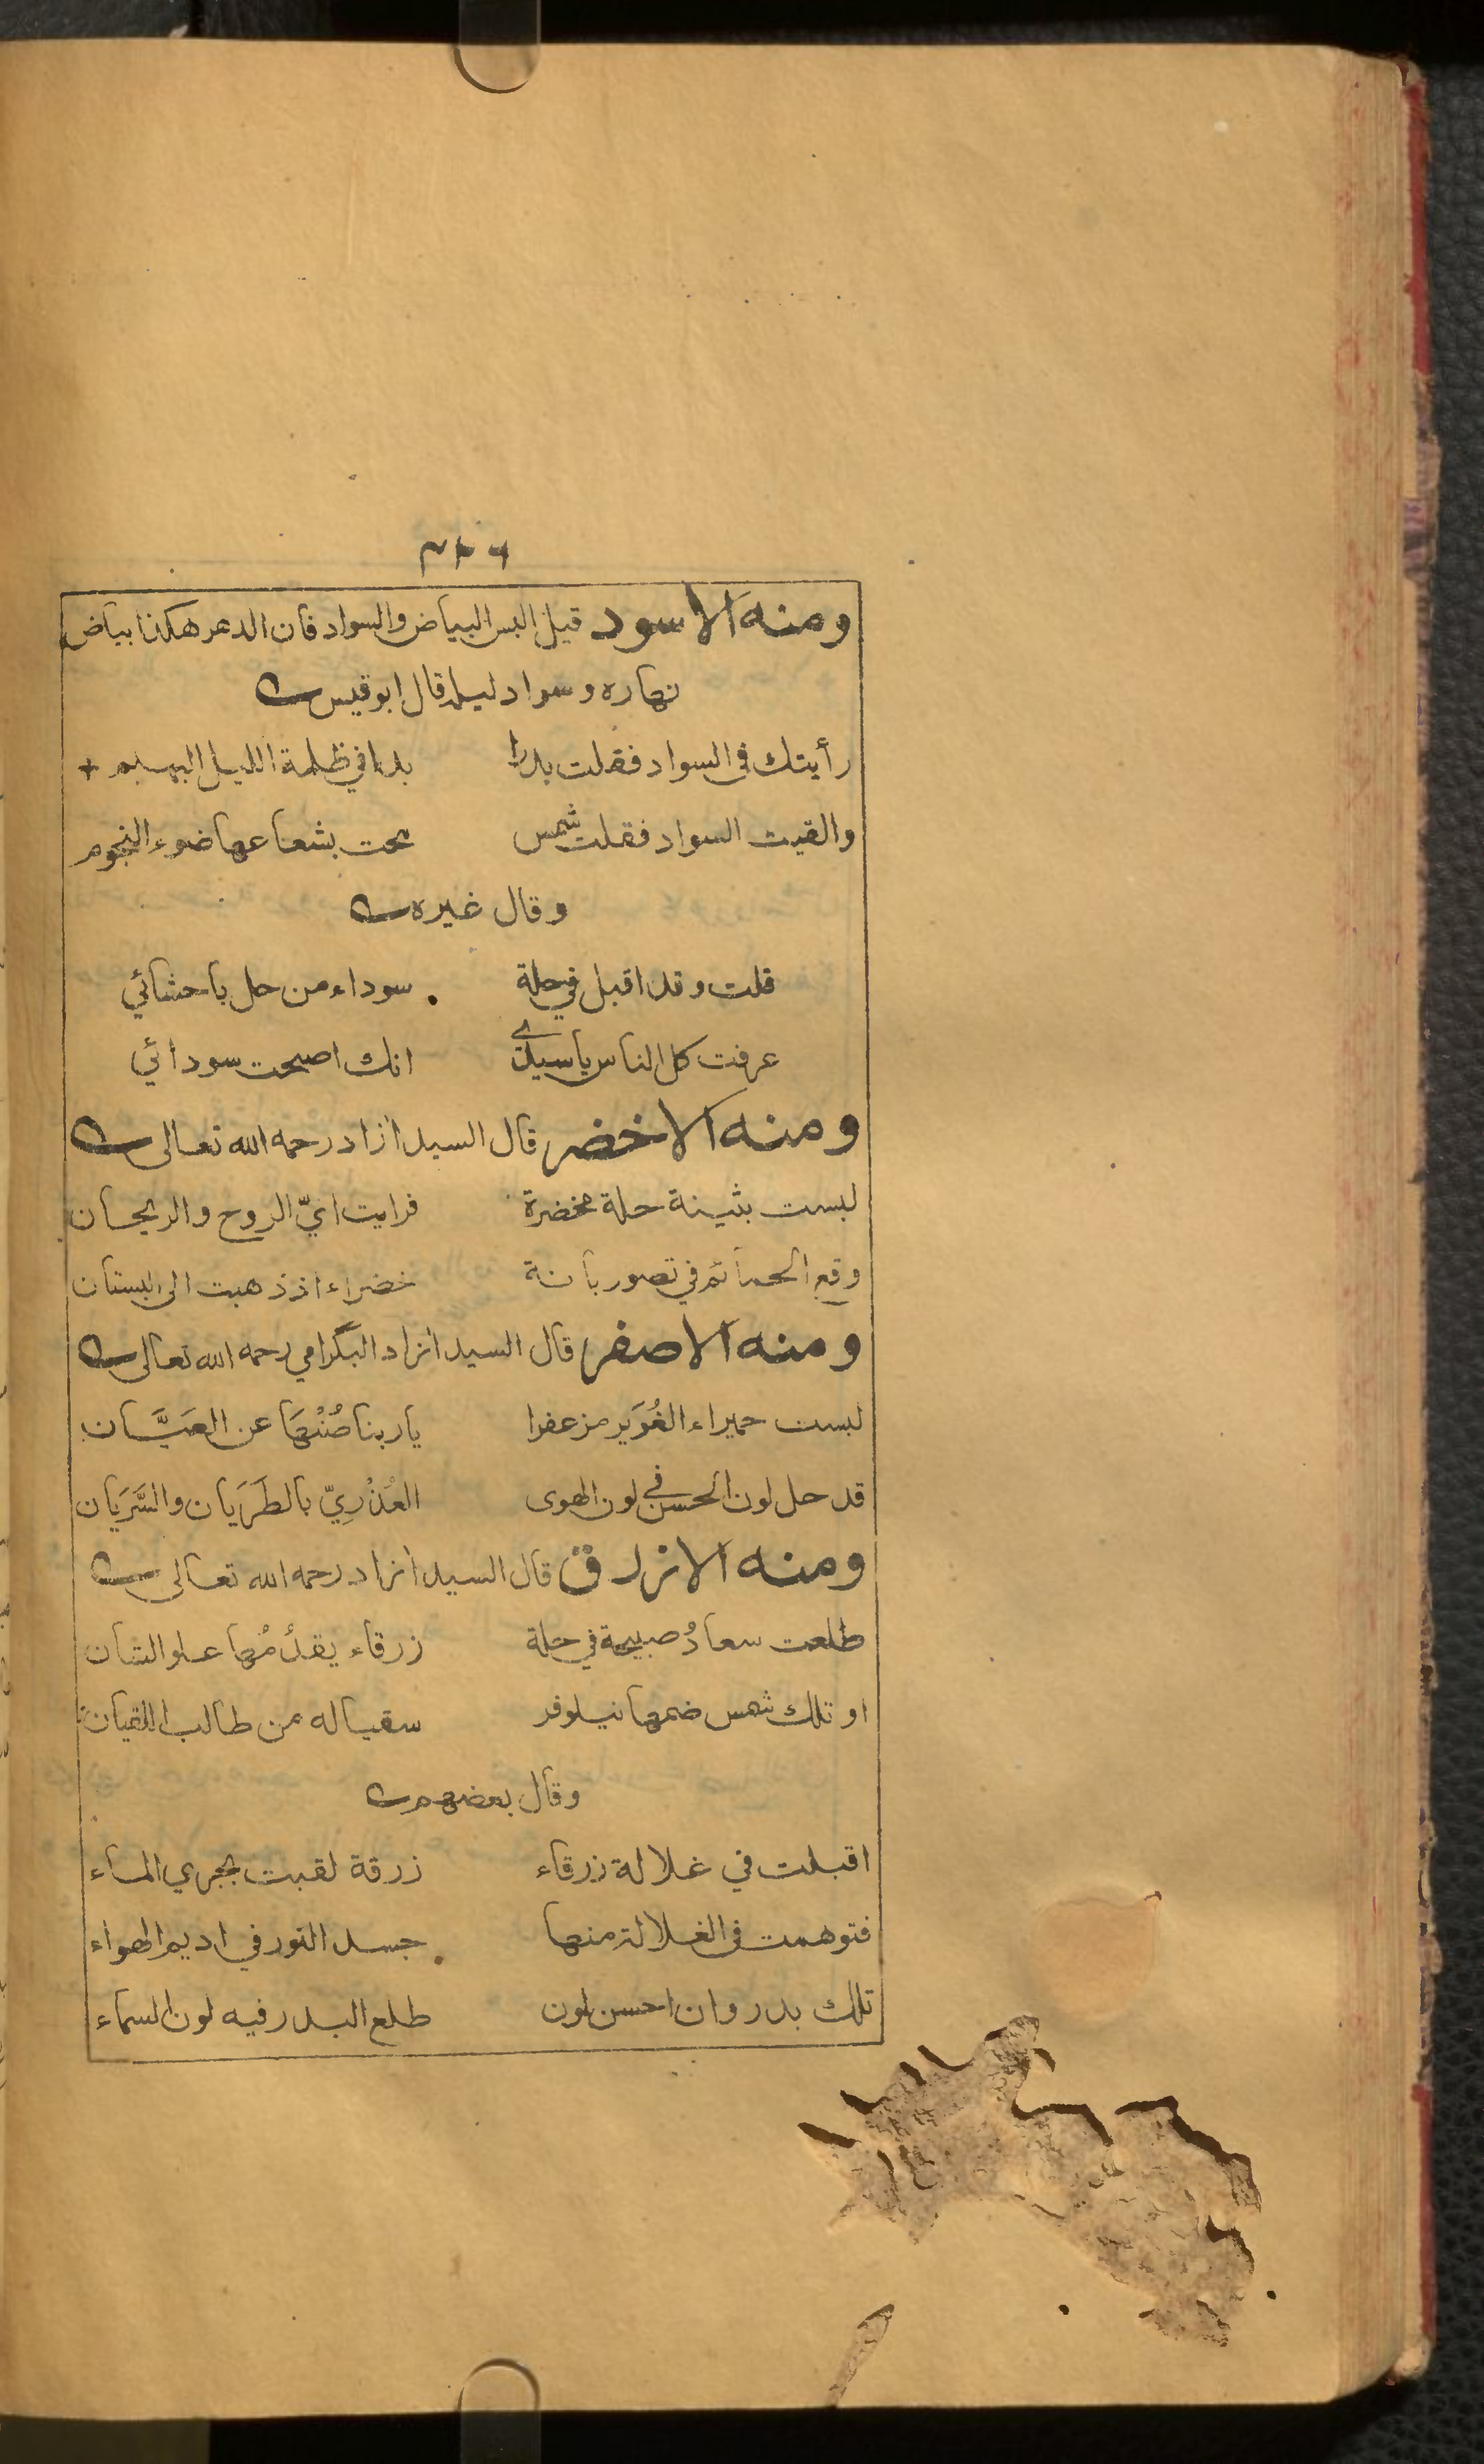 ومنه الاسود قيل البس البياض والسواد فان الدهر هكذا بياض
نهاره وسواد ليله قال ابو قيس
رأيتك في السواد فقلت بدرا بدا في ظلمة الليل البهيم +
والقيت السواد فقلت شمس محت بشعاعها ضوء النجوم
وقال غيره
قلت وقد اقبل في حلة سوداء من حل باحشائي
عرفت كل الناس يا سيدي انك اصبحت سودائي
ومنه الاخضر قال السيد ازاد رحمه الله تعالى
لبست بثينة حلة مخضرة فرايت اني الروح والريحان
وقع الحمائم في تصور بانة خضراء اذ ذهبت الى البستان
ومنه الاصفر قال السيد ازاد البلگرامي رحمه الله تعالى
لبست حميراء الغُوَير مزعفرا يا ربنا صُنْهَا عن العَيَّان
قد حل لون الحسن في لون الهوى العُذْرِيّ بالطَرَيان والسَّرَيان
ومنه الازرق قال السيد ازاد رحمه الله تعالى
طلعت سعادُ صبيحة في حلة زرقاء يقدُمُها علو الشان
او تلك شمس ضمها نيلوفر سقيا له من طالب اللقيان
وقال بعضهم
اقبلت في غلالة زرقاء زرقة لقبت بجري الماء
فتوهمت في الغلالة منها جسد النور في اديم الهواء
تلك بدر وان احسن لون طلع البدر فيه لون السماء